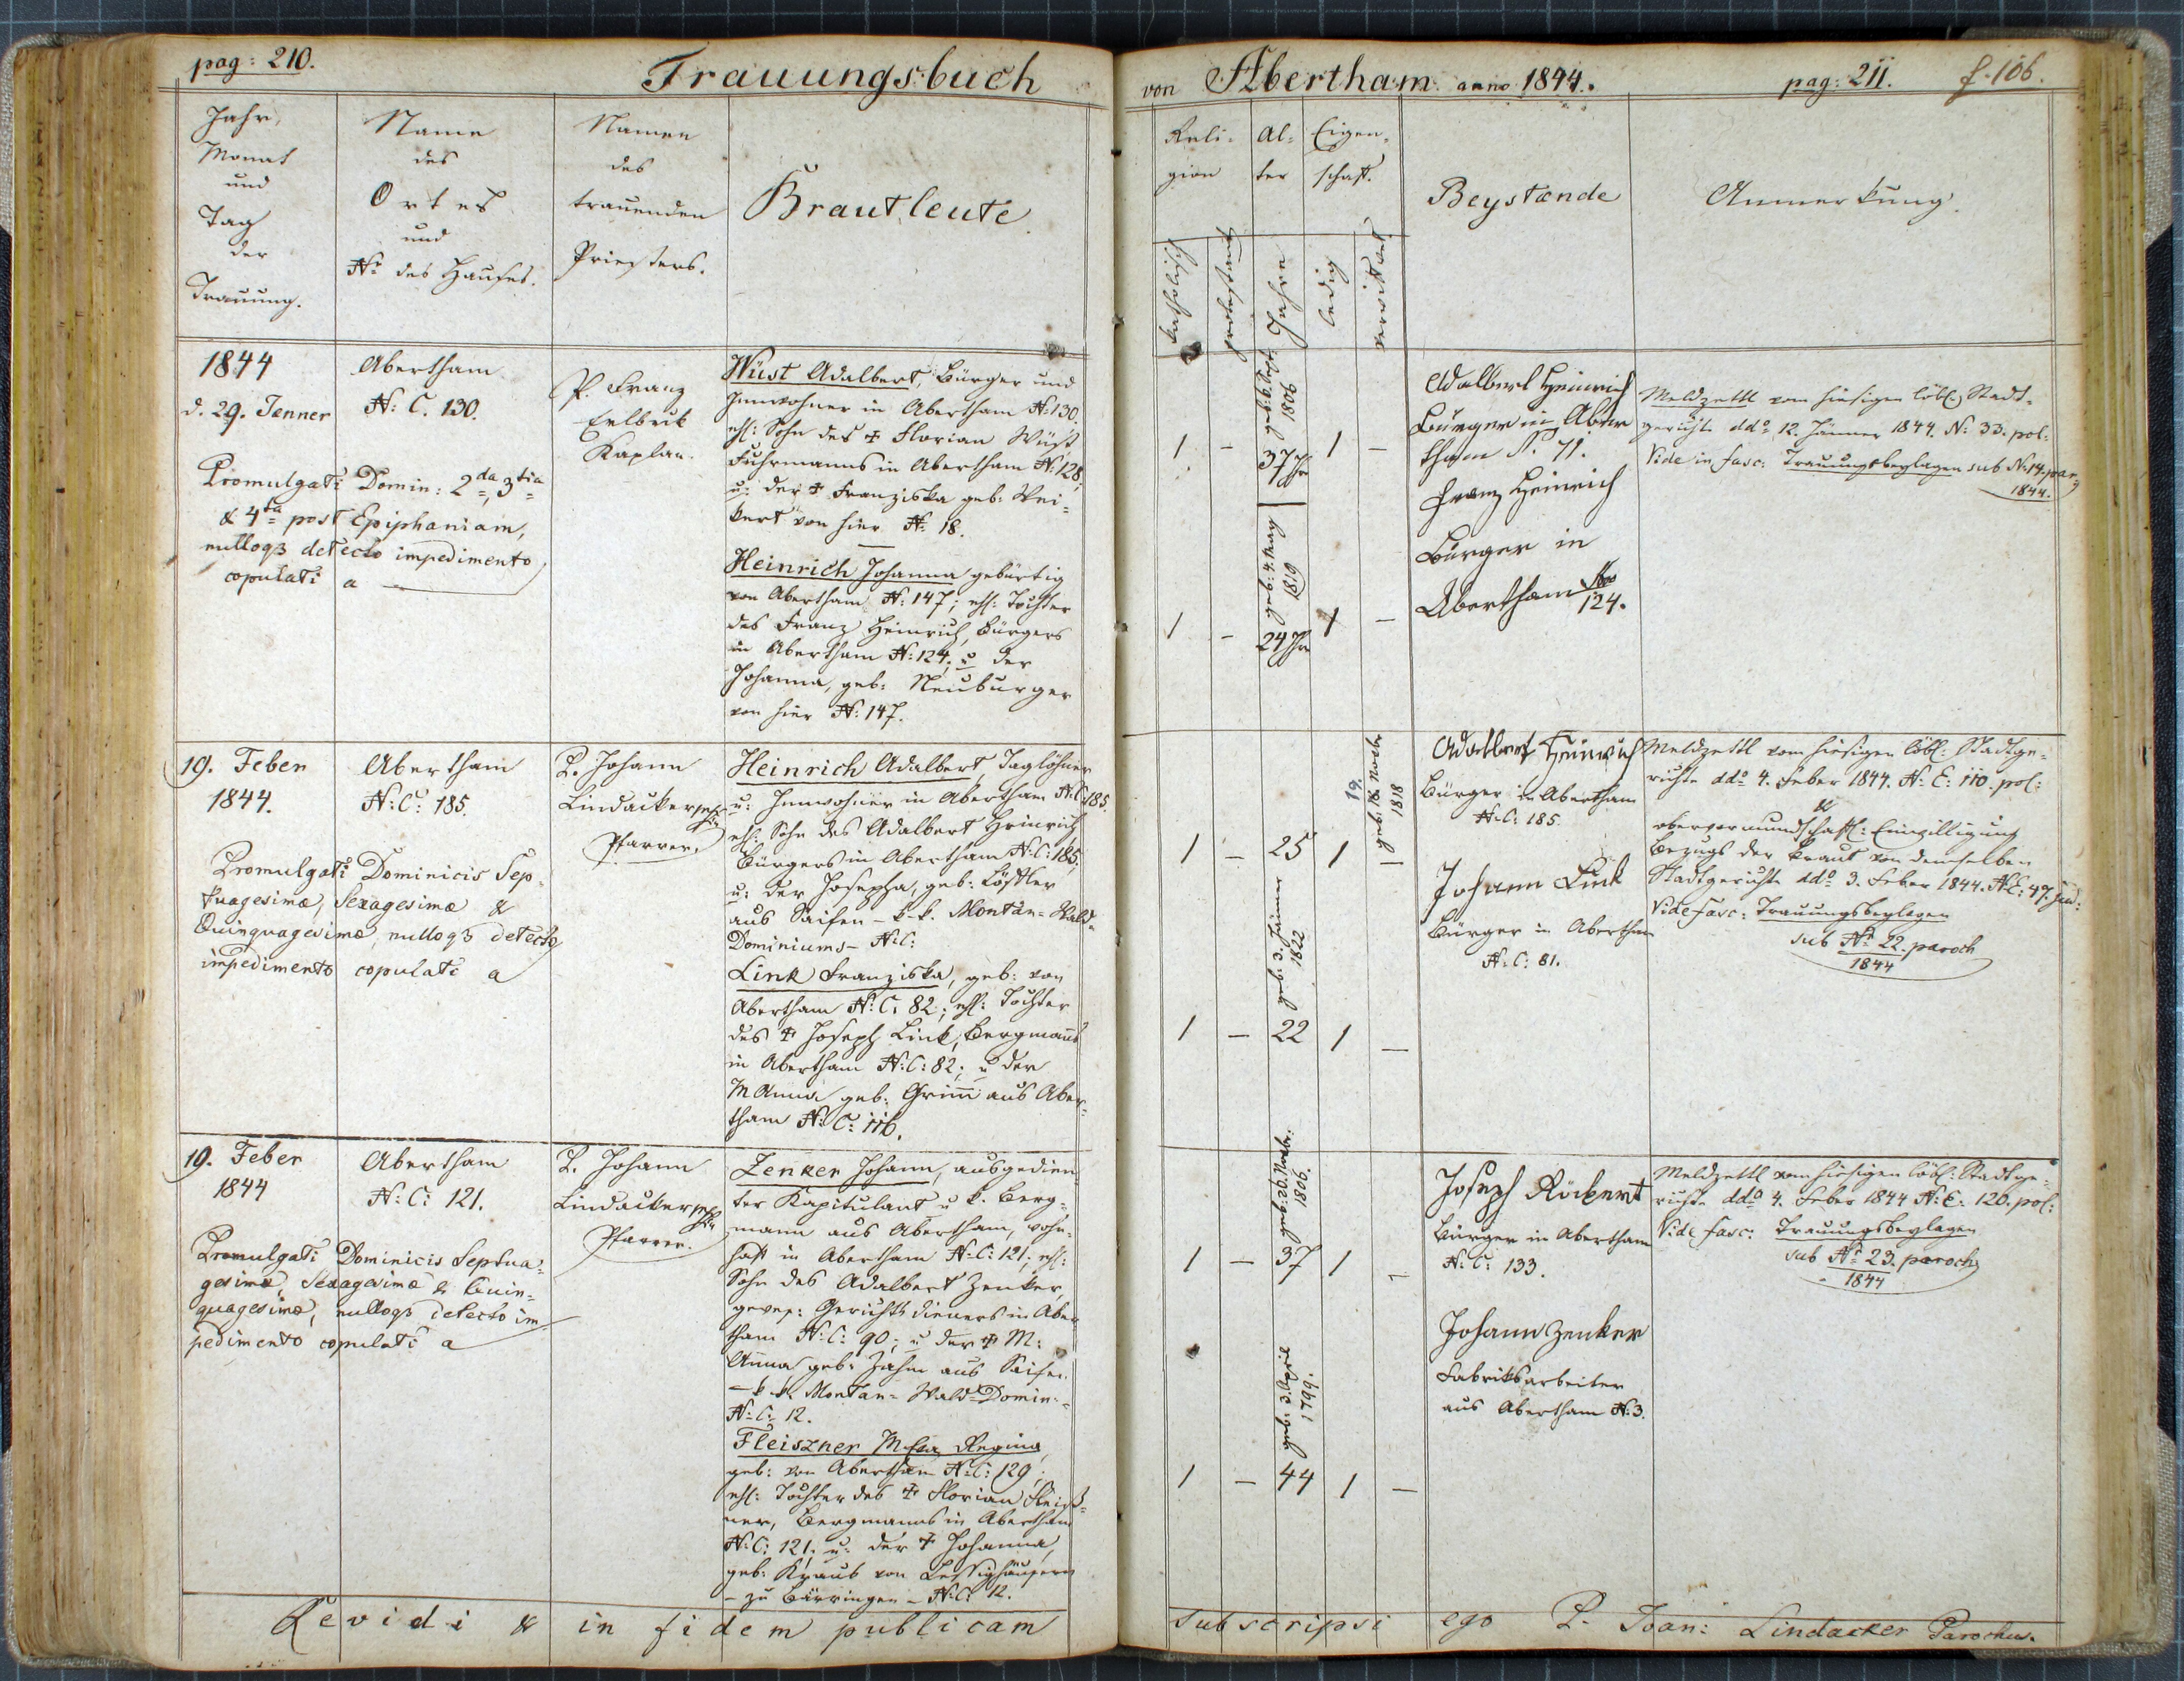 pag: 210.
Trauungsbuch
Jahr,
Monat
und
Tag
der
Trauung.
Name
des
Ortes
und
Nr. des Hauses.
Namen
des
trauenden
Priesters.
Brautleute
1844
d. 29. Jenner
Abertham
N: C. 130.
Promulgati Domin: 2da, 3tia
& 4ta post Epiphaniam,
nulloqз detecto impedimento
copulati a
P. Franz
Kaplan.
Wüst Adalbert, Bürger und
Innwohner in Abertham N: 130.
ehl: Sohn des † Florian Wüst
Fuhrmanns in Abertham N: 128,
u: der † Franziska geb: Wei-
kert von hier N: 18.
Heinrich Johanna gebürtig
von Abertham N: 147; ehl: Tochter
des Franz Heinrich, Bürgers
in Abertham N: 124, u der
Johanna, geb: Neuburger
von hier N: 147.
19. Feber
1844.
Abertham
N: C: 185.
Promulgati Dominicis Sep-
tuagesimæ, Sexagesimæ &
Quinquagesimæ, nulloqз detecto
impedimento copulati a
P. Johann
Lindacker
Pfarrer.
Heinrich Adalbert, Taglöhner
u: Innwohner in Abertham N.C. 185.
ehl: Sohn des Adalbert Heinrich
Bürgers in Abertham N.C: 185,
u: der Josepha, geb: Löstler
aus Saifen – k. k. Montan-Wald-
Dominiums – N.C:
Link Franziska, geb: von
Abertham N: C: 82; ehl: Tochter
des † Joseph Link, Bergmañs
in Abertham N: C: 82; u der
M Anna geb: Grim̄ aus Aber-
tham N: C: 116.
19. Feber
1844
Abertham
N: C: 121.
Promulgati Dominicis Septua-
gesimæ, Sexagesimæ & Quin-
quagesimæ, nulloqз detecto im-
pedimento copulati a
P. Johann
Lindacker
Pfarrer.
Zenker Johann, ausgedien-
ter Kapitulant u k. Berg-
mann aus Abertham, wohn-
haft in Abertham N: C: 121; ehl:
Sohn des Adalbert Zenker,
gewes: Gerichtsdieners in Aber
tham N: C: 90; u der † M:
Anna geb: Zahn aus Saifen
– k. k. Montan-Wald-Domin:-
N: C: 12.
Fleiszner M Eva Regina,
geb: von Abertham N: C: 129;
ehl: Tochter des † Florian Fleiß-
ner, Bergmanns in Abertham
N: C: 121, u: der † Johanna,
geb: Kraus von Lessighäusern
– zu Bärringen – N: C: 12.
Revidi & in fidem publicam
von Abertham anno 1844.
pag: 211.
f. 106.
Reli-
gion
Al-
ter
Eigen-
schaft.
Beystænde
Anmerkung.
katholisch
protestant
Jahre
ledig
verwittwet
1 – geb: 6. Sept: 1806
37 Jhr 1 –
1 – geb: 4. May 1819
24 Jhr 1 –
Adalbert Heinrich
Bürger in Aber
tham N. 71.
Franz Heinrich
Bürger in
Abertham Nro
124.
Meldzettl vom hiesigen löbl: Stadt-
gerichte ddo 12. Jänner 1844. N: 33. pol:
Vide in fasc: Trauungsbeylagen sub N: 14. par:
1844.
1 – 25 1
19.
geb: 18. Novbr
1818
1 – 22 1 –
geb: 3. Jänner
1822
Adalbert Heinrich
Bürger in Abertham
N.C: 185.
Johann Link
Bürger in Abertham
N: C: 81.
Meldzettl vom hiesigen löbl: Stadtge-
richte ddo 4. Feber 1844. N: E: 110. pol:
&
obervormundschaftl: Einwilligung
Bezugs der Braut von demselben
Stadtgerichte ddo 3. Feber 1844. N.E: 47. jud:
Vide fasc: Trauungsbeylagen
sub Nr 22. paroch
1844
1 – 37 1 –
geb: 29. Novbr:
1806.
1 – 44 1 –
geb: 3. April
1799.
Joseph Röckert
Bürger in Abertham
N: C: 133.
Johann Zenker
Fabriksarbeiter
aus Abertham N: 3.
Meldzettl vom hiesigen löbl: Stadtge-
richte ddo 4. Feber 1844 N: E: 120. pol:
Vide fasc: Trauungsbeylagen
sub Nr 23. paroch
1844
subscripsi ego P. Joan: Lindacker Parochus.